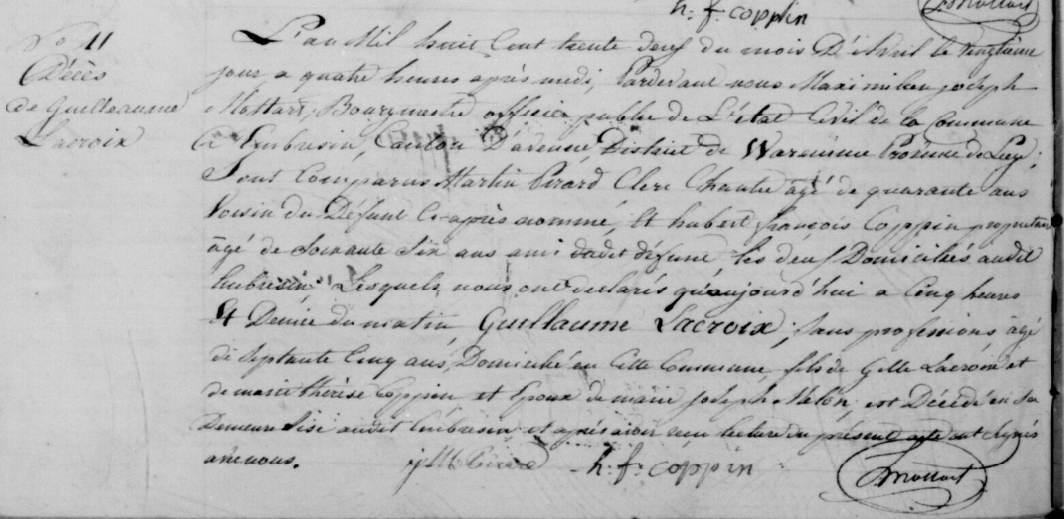 h. f. coppin
Mottart
No 11
Décès
de Guilleaume
Lacroix
L'an Mil huit Cent trente deuf du mois D'Avril le Vingtieme
jour a quatre heures après midi, Pardevant nous Maximilien joseph
Mottart, Bourgmestre officier publie de L'état Civil de la Commune
Embresin, Canton D'avenne, District de Waremme Province de Liege;
Sont Comparus Martin Pirard Clerc Chantre âgé de quarante ans
Voisin du Défunt Ci-après nommé, Et hubert françois Coppin proprietaire
âgé de Soixante Six ans ami dudet défunt, les deuf Domiciliés audit
Embresin Lesquels nous ont déclarés qu'aujourd'hui a Cinq heures
Et Demie du matin, Guillaume Lacroix, Sans professions, âgé
de Septante Cinq ans, Domicilié en Cette Commune, fils de Gille Lacroix et
de marie thérèse Coppin et Epoux de marie Joseph Melon, est Décédé en Sa
Demeure Sise audit Embresin et après avoir eu lecture du présent acte ont Signés
avec nous.
Pirard
h. f. coppin
Mottart